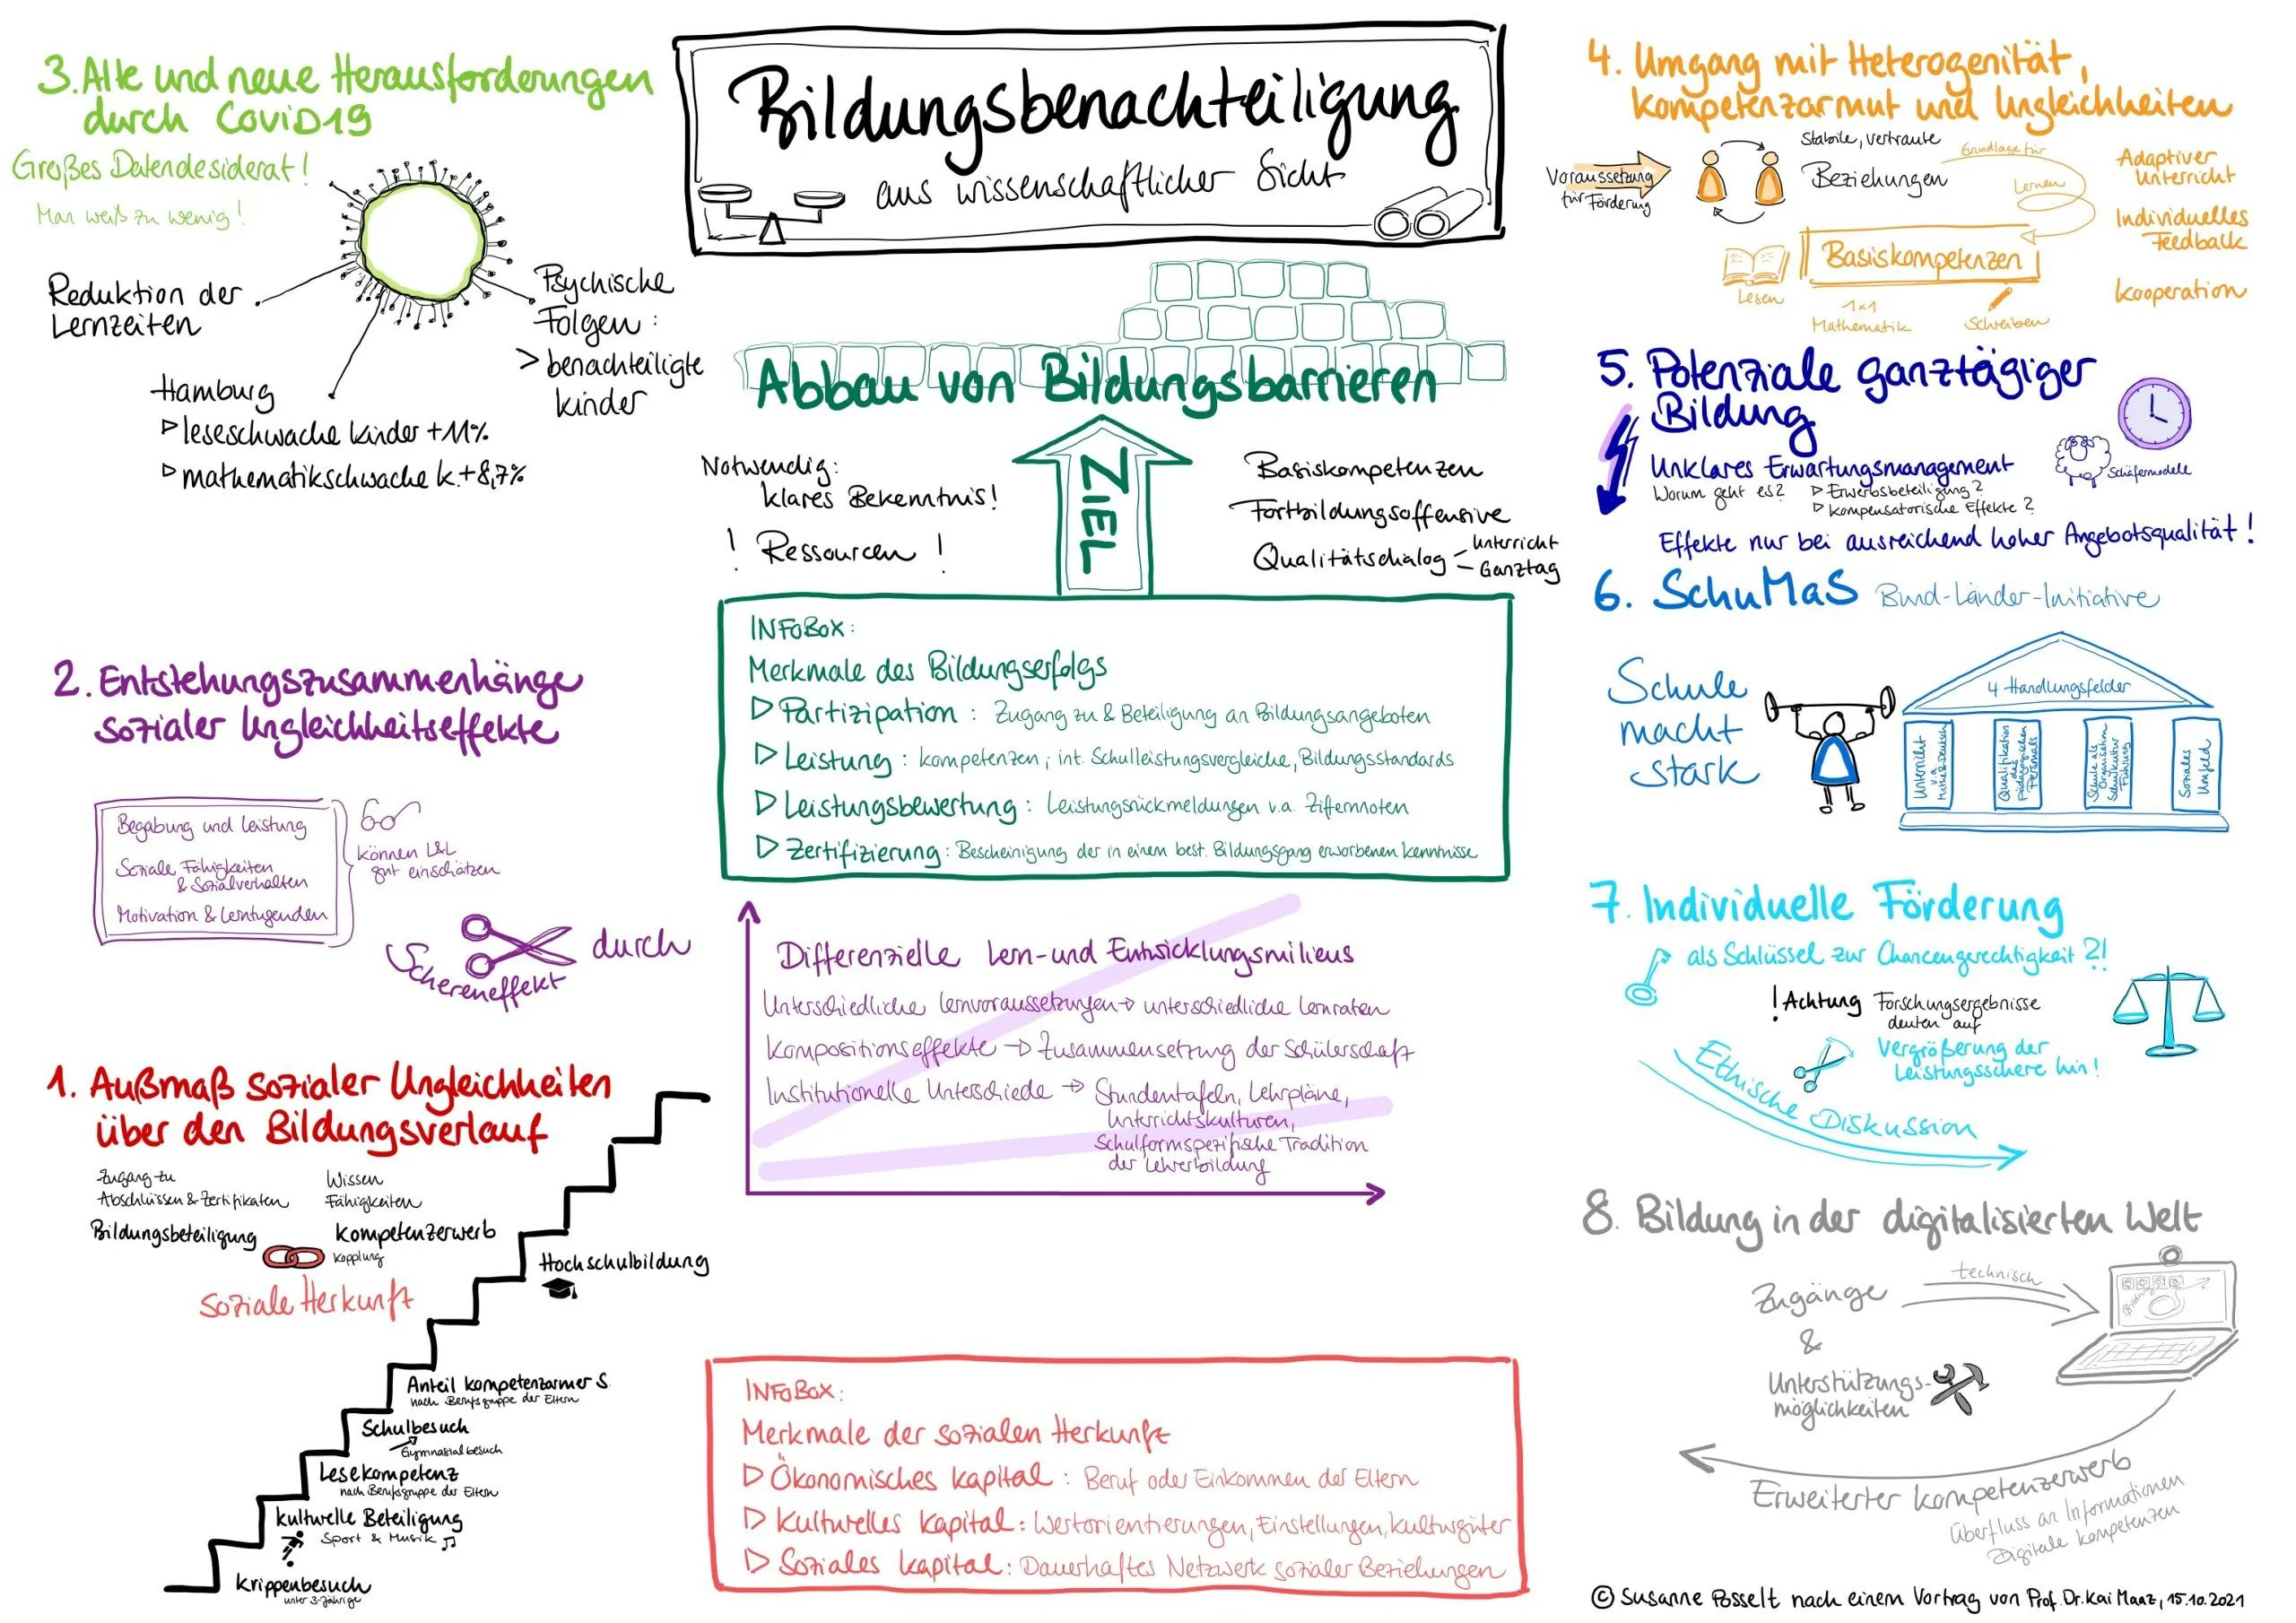 Bildungsbenachteiligung
aus wissenschaftlicher Sicht
3. Alte und neue Herausforderungen
durch CoviD19
Großes Datendesiderat!
Man weiß zu wenig!
Reduktion der
Lernzeiten
Psychische
Folgen:
> benachteiligte
Kinder
Hamburg
▷ leseschwache Kinder +11%
▷ mathematikschwache K. +8,7%
2. Entstehungszusammenhänge
sozialer Ungleichheitseffekte
Begabung und Leistung
Soziale Fähigkeiten
& Sozialverhalten
Motivation & Lerntugenden
können L&L
gut einschätzen
Schereneffekt
durch
1. Außmaß sozialer Ungleichheiten
über den Bildungsverlauf
Zugang zu
Abschlüssen & Zertifikaten
Wissen
Fähigkeiten
Bildungsbeteiligung
Kompetenzerwerb
Kopplung
Soziale Herkunft
Hochschulbildung
Anteil kompetenzarmer S.
nach Berufsgruppe der Eltern
Schulbesuch
Gymnasialbesuch
Lesekompetenz
nach Berufsgruppe der Eltern
kulturelle Beteiligung
Sport & Musik
Krippenbesuch
unter 3-jährige
Abbau von Bildungsbarrieren
ZIEL
Notwendig:
klares Bekenntnis!
! Ressourcen !
Basiskompetenzen
Fortbildungsoffensive
Qualitätsdialog – Unterricht
– Ganztag
INFOBOX:
Merkmale des Bildungserfolgs
▷ Partizipation: Zugang zu & Beteiligung an Bildungsangeboten
▷ Leistung: Kompetenzen; int. Schulleistungsvergleiche, Bildungsstandards
▷ Leistungsbewertung: Leistungsrückmeldungen v.a. Ziffernnoten
▷ Zertifizierung: Bescheinigung der in einem best. Bildungsgang erworbenen Kenntnisse
Differenzielle Lern- und Entwicklungsmilieus
Unterschiedliche Lernvoraussetzungen → unterschiedliche Lernraten
Kompositionseffekte → Zusammensetzung der Schülerschaft
Institutionelle Unterschiede → Stundentafeln, Lehrpläne,
Unterrichtskulturen,
Schulformspezifische Tradition
der Lehrerbildung
INFOBOX:
Merkmale der sozialen Herkunft
▷ Ökonomisches Kapital: Beruf oder Einkommen der Eltern
▷ Kulturelles Kapital: Wertorientierungen, Einstellungen, Kulturgüter
▷ Soziales Kapital: Dauerhaftes Netzwerk sozialer Beziehungen
4. Umgang mit Heterogenität,
Kompetenzarmut und Ungleichheiten
Voraussetzung
für Förderung
Stabile, vertraute
Beziehungen
Grundlage für
Lernen
Basiskompetenzen
Lesen
1x1
Mathematik
Schreiben
Adaptiver
Unterricht
Individuelles
Feedback
Kooperation
5. Potenziale ganztägiger
Bildung
Unklares Erwartungsmanagement
Worum geht es?
▷ Erwerbsbeteiligung?
▷ Kompensatorische Effekte?
Schäfermodelle
Effekte nur bei ausreichend hoher Angebotsqualität!
6. SchuMaS Bund-Länder-Initiative
Schule
macht
stark
4 Handlungsfelder
Unterricht
v.a.
Mathe & Deutsch
Qualifikation
des
pädagogischen
Personals
Schule als
Organisation
Schulkultur
Führung
Soziales
Umfeld
7. Individuelle Förderung
als Schlüssel zur Chancengerechtigkeit?!
! Achtung Forschungsergebnisse
deuten auf
Vergrößerung der
Leistungsschere hin!
Ethische Diskussion
8. Bildung in der digitalisierten Welt
Zugänge
technisch
&
Unterstützungs-
möglichkeiten
Bildung
Erweiterter Kompetenzerwerb
Überfluss an Informationen
Digitale Kompetenzen
© Susanne Posselt nach einem Vortrag von Prof. Dr. Kai Maaz, 15.10.2021